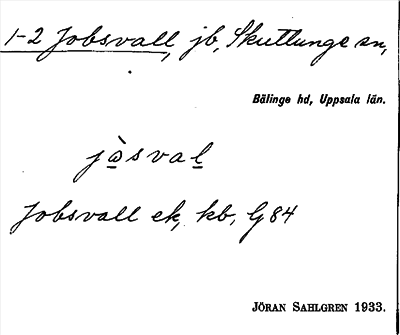 1-2 Jobsvall, jb, Skuttunge sn,
Bälinge hd, Uppsala län.
jòsval
Jobsvall ek, kb, G 84
JÖRAN SAHLGREN 1933.